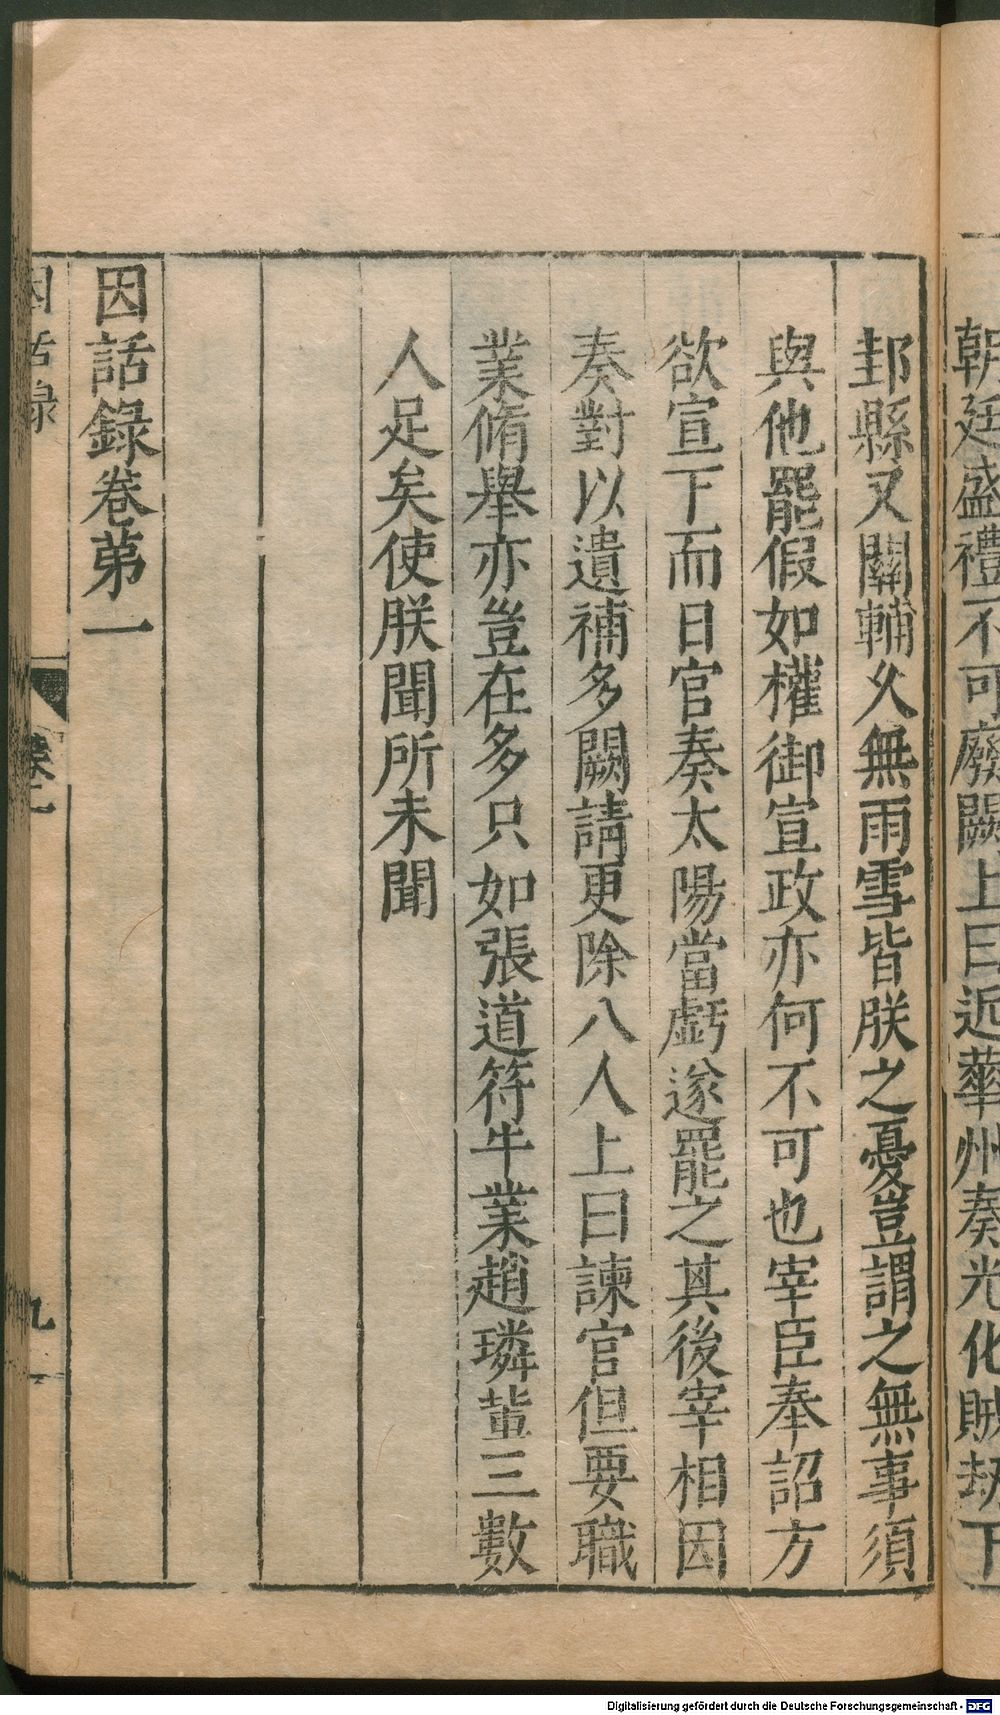 朝廷盛禮不可廢闕上曰近華州奏光化賊刼下
邽縣又關輔久無雨雪皆朕之憂豈謂之無事須
與他罷假如權御宣政亦何不可也宰臣奉詔方
欲宣下而日官奏太陽當虧遂罷之其後宰相因
奏對以遺補多闕請更除八人上曰諫官但要職
業脩舉亦豈在多只如張道符牛業趙璘輩三數
人足矣使朕聞所未聞
因話錄卷第一
因話錄
九
Digitalisierung gefördert durch die Deutsche Forschungsgemeinschaft - DFG